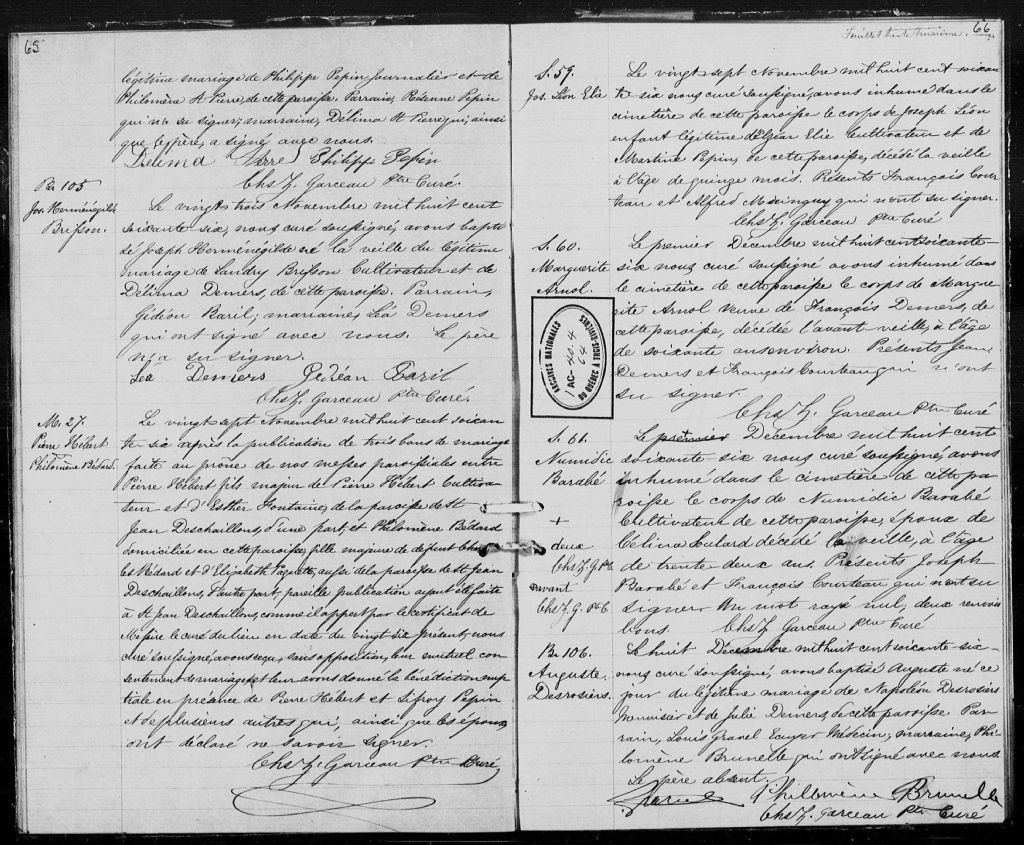 65
légitime mariage de Philippe Pepin Journalier et de
Philomène St Pierre, de cette paroisse. Parrain, Pepin
qui n'a su signer; marraine, Délima St Pierre qui, ainsi
que le père, a signé avec nous.
Delima Pierre Philippe Pepin
Chs Z. Garceau Ptre Curé
B. 105
Jos. Herménégilde
Brisson.
Le vingt trois Novembre mil huit cent
soixante six, nous curé soussigné, avons bapti
sé Joseph Herménégilde né la veille du légitime
mariage de Landry Brisson Cultivateur et de
Délima Demers, de cette paroisse. Parrain,
Gédéon Baril; marraine, Léa Demers
qui ont signé avec nous. Le père
n'a su signer.
Léa Demers Gedéan Baril
Chs Z. Garceau Ptre Curé.
M. 27.
Pierre Hébert
Philomène Bédard.
Le vingt sept Novembre mil huit cent soixan
te six après la publication de trois bans de mariage
faite au prône de nos messes paroissiales entre
Pierre Hébert fils majeur de Pierre Hébert Cultiva
teur et d'Esther Fontaine, de la paroisse de St
Jean Deschaillons, d'une part; et Philomène Bédard
domiciliée en cette paroisse, fille majeure de défunt Char
les Bédard et d'Elizabeth Paquette, aussi de la paroisse de St Jean
Deschaillons, d'autre part; pareille publication ayant été faite
à St Jean Deschaillons, comme il appert par le certificat de
Messire le curé du lieu en date du vingt six présent; nous
curé soussigné, avons reçu, sans opposition, leur mutuel con
sentement de mariage, et leur avons donné la bénédiction nup
tiale en présence de Pierre Hébert et Pepin
et de plusieurs autres qui, ainsi que les époux,
ont déclaré ne savoir signer.
Chs Z. Garceau Ptre Curé
Feuillet trente troisième. 66
S. 59.
Jos. Léon Elie
Le vingt sept Novembre mil huit cent soixan
te six nous curé soussigné, avons inhumé dans le
cimetière de cette paroisse le corps de Joseph Léon
enfant légitime de Elie Cultivateur et de
Martine Pepin, de cette paroisse, décédé la veille
à l'âge de quinze mois. Présents François Cour
teau et Alfred qui n'ont su signer.
Chs Z. Garceau Ptre Curé
S. 60.
Marguerite
Arnol.
Le premier Décembre mil huit cent soixante-
six nous curé soussigné avons inhumé dans
le cimetière de cette paroisse le corps de Margue
rite Arnol veuve de François Demers, de
cette paroisse, décédée l'avant veille, à l'âge
de soixante ans environ. Présents Jean
Demers et François Courteau qui n'ont
su signer.
Chs Z. Garceau Ptre Curé
ARCHIVES NATIONALES
AC-40-4
64
DU QUÉBEC À TROIS-RIVIÈRES
S. 61.
Numidic
Barabé
+
deux
Chs Z. G. Ptre
avant
Chs Z. G. Pt. C
Le premier Décembre mil huit cent
soixante-six nous curé soussigné, avons
inhumé dans le cimetière de cette pa
roisse le corps de Numidic Barabé
Cultivateur de cette paroisse, époux de
Célina Loulard décédé la veille, à l'âge
de trente deux ans. Présents Joseph
Barabé et François Courteau qui n'ont su
signer Un mot rayé nul; deux renvois
bons. Chs Z. Garceau Ptre Curé
B. 106.
Auguste
Desrosiers.
Le huit Décembre mil huit cent soixante six
nous curé soussigné, avons baptisé Auguste né ce
jour du légitime mariage de Napoléon Desrosiers
Menuisier et de Julie Demers, de cette paroisse. Par
rain, Louis Grand Ecuyer Médecin; marraine, Phi
lomène Brunelle qui ont signé avec nous.
Le père absent.
Philomène Brunelle
Chs Z. Garceau Ptre Curé